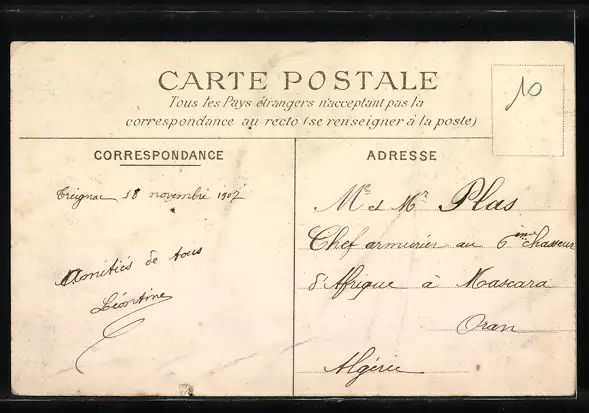 CARTE POSTALE
Tous les Pays étrangers n'acceptant pas la
correspondance au recto (se renseigner à la poste)
10
CORRESPONDANCE
Treignac 18 novembre 1907
Amitiés de tous
Léontine
ADRESSE
Mme et Mr Plas
Chef armurier au 6ème chasseur
d'Afrique à Mascara
Oran
Algérie